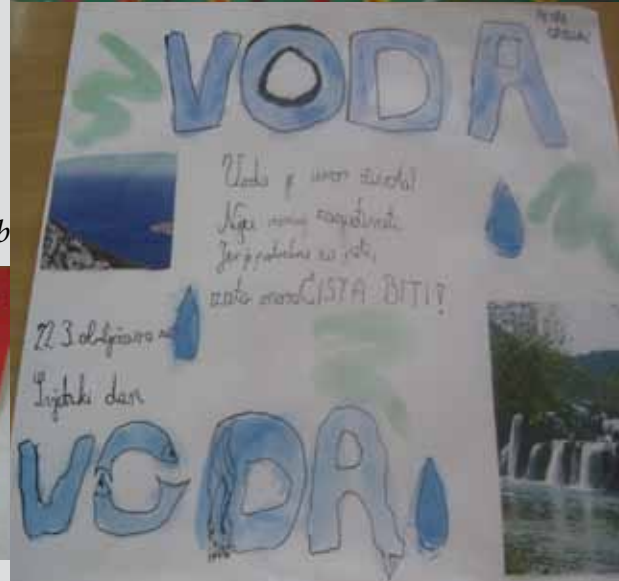 VODA
Voda je izvor života!
Nije
Jer je potrebna za piti,
zato mora ČISTA BITI!
22.3. obilježava se
Svjetski dan
VODA
b